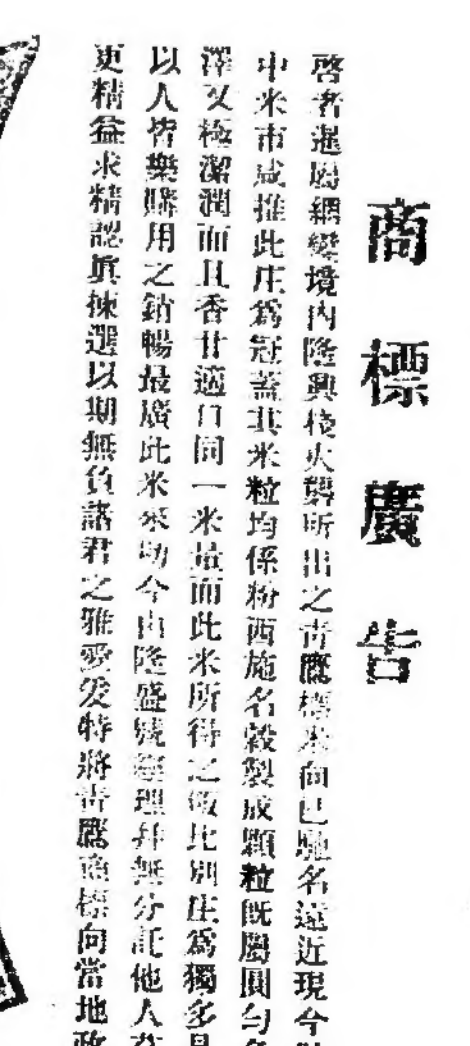 商標廣告
啓者暹屬網變境內隆興棧火礱所出之青鷹標米向已馳名遠近現今
中米市咸推此庄爲冠蓋其米粒均係粉西施名穀製成顆粒既屬圓勻
澤又極潔潤而且香甘適口同一米量而此米所得之飯比別庄爲獨多
以人皆樂購用之銷暢最廣此米來叻今由隆盛號經理並無分託他人
更精益求精認眞揀選以期無負諸君之雅愛爰特將青鷹商標向當地政